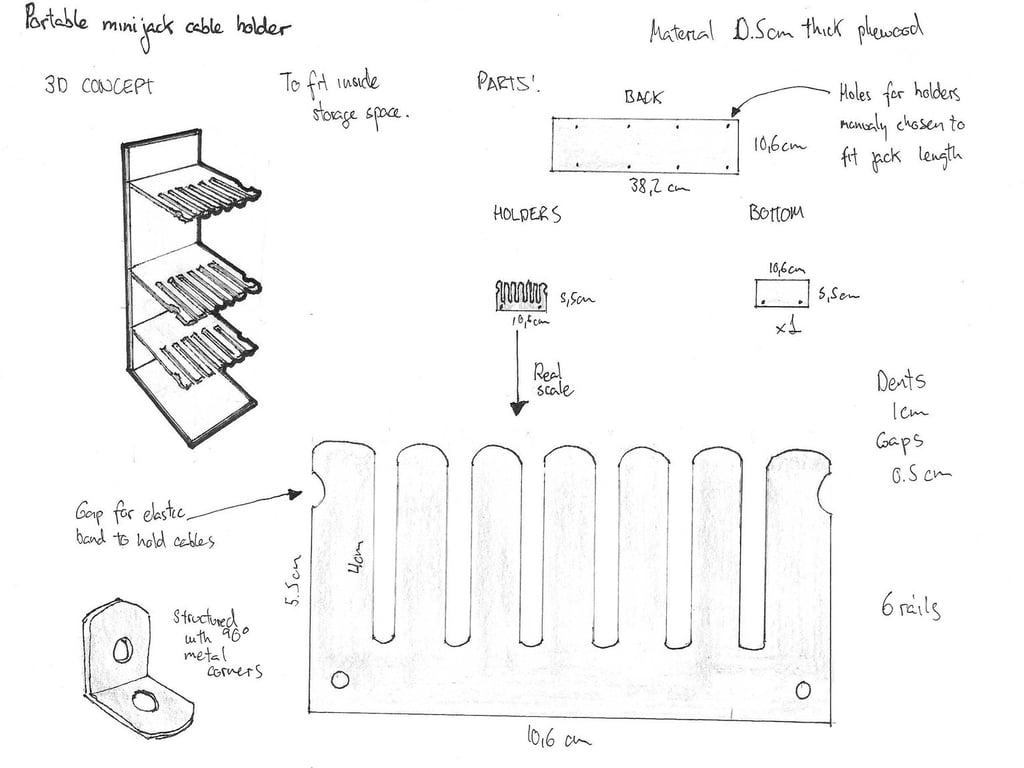 Portable minijack cable holder
Material 0.5cm thick plewood
3D CONCEPT
To fit inside
storage space.
PARTS:
BACK
10,6cm
38,2 cm
Holes for holders
manualy chosen to
fit jack length
HOLDERS
5,5cm
10,6cm
BOTTOM
10,6cm
5,5cm
x1
Real
scale
Dents
1cm
Gaps
0.5cm
Gap for elastic
band to hold cables
5.5cm
4cm
6 rails
Structured
with 90º
metal
corners
10,6 cm